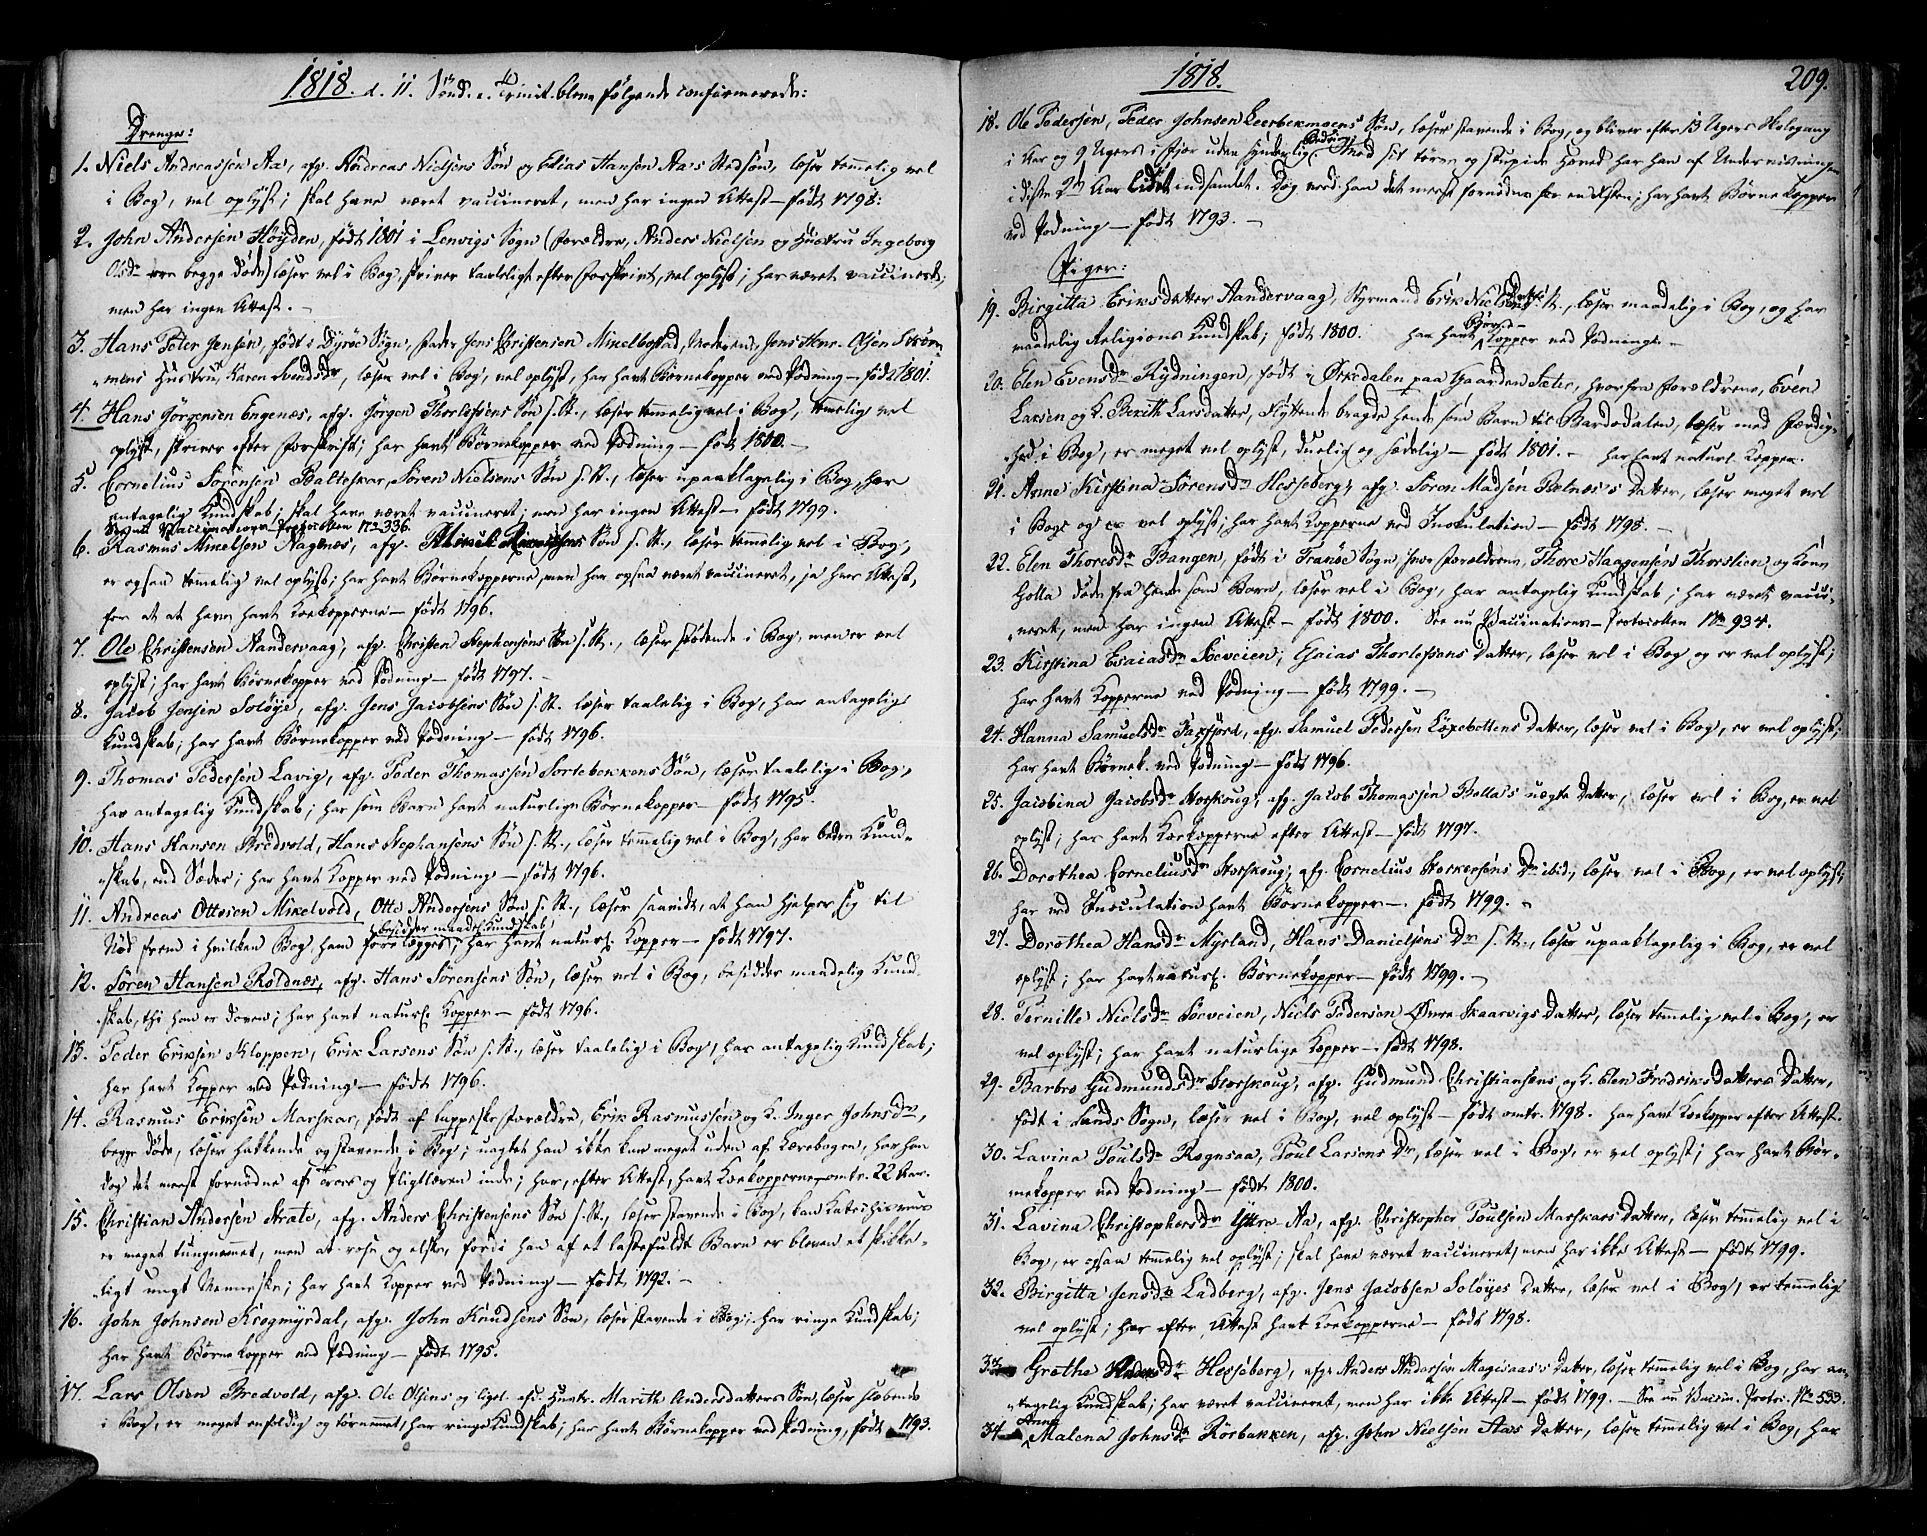 1818. d. 11. Sønd. e. Trinit. bleve følgende confirmerede:
Drenge:
1. Niels Andreassen Aa, afg. Andreas Nielsens Søn og Elias Hansen Aa's Stedsøn, læser temmelig vel
i Bog, vel oplyst; skal have været vaccineret, men har ingen Attest – født 1798.
2. John Andersen Høyden, født 1801 i Lenvigs Sogn (Forældre, Anders Nielsen og Hustru Ingeborg
Olsdr ere begge døde) læser vel i Bog, skriver taaleligt efter Forskrivt, vel oplyst; har været vaccineret,
men har ingen Attest. –
3. Hans Peder Jensen, født i Dyrøe Sogn, Fader Jens Christensen Mikelbostad, Moder Jens Henr. Olsen
mens Hustru, Karen Svendsdr, læser vel i Bog, vel oplyst, har havt Børnekopper ved Podning – født 1801.
4. Hans Jørgensen Engenæs, afg. Jørgen Thorlefsens Søn s. St., læser temmelig vel i Bog, temmelig vel
oplyst, skriver efter Forskrift; har havt Børnekopper ved Podning – født 1800. –
5. Cornelius Sørensen Balteskar, Søren Nielsens Søn s. St., læser upaaklagelig i Bog, har
antagelig Kundskab; skal have været vaccineret; men har ingen Attest – født 1799.
See nu Vaccinations-Protocollen No 336.
6. Rasmus Mikelsen Nagenæs, afg. Mikel Rasmusens Søn s. St., læser temmelig vel i Bog,
er ogsaa temmelig vel oplyst; har havt Børnekopperne, men har ogsaa været vaccineret, ja har Attest,
for at have havt Koekopperne – født 1796.
7. Ole Christensen Aandervaag, afg. Christen Stephensens Søn s. St., læser stødende i Bog, men er vel
oplyst; har havt Børnekopper ved Podning – født 1797. –
8. Jacob Jensen Soløye, afg. Jens Jacobsens Søn s. St. læser taalelig i Bog, har antagelig
Kundskab; har havt Børnekopper ved Podning – født 1796.
9. Thomas Pedersen Lavig, afg. Peder Thomassen Sortebenkens Søn, læser taalelig i Bog,
har antagelig Kundskab; har som Barn havt naturlige Børnekopper – født 1795.
10. Hans Hansen Bredvold, Hans Stephansens Søn s. St., læser temmelig vel i Bog, har bedre Kund-
skab, end Sæder; har havt Kopper ved Podning – født 1796.
11. Andreas Ottesen Mikelvold, Otte Andersens Søn s. St., læser saavidt, at han hjelper sig til
besidder maadel. Kundskab
Nød frem i hvilken Bog ham forelægges, har havt naturl. Kopper – født 1797.
12. Søren Hansen Roldnæs, afg. Hans Sørensens Søn, læser vel i Bog, besidder maadelig Kund-
skab, thi han er doven; har havt naturl. Kopper – født 1796.
13. Peder Eriksen Kloppen, Erik Larsens Søn s. St., læser taalelig i Bog, har antagelig Kundskab;
har havt Kopper ved Podning – født 1796.
14. Rasmus Eriksen Marskar, født af lappiske Forældre, Erik Rasmussen og K. Inger Johnsdr,
begge døde, læser hakkende og stavende i Bog; uagtet han ikke kan meget uden af Lærebogen, har han
dog det meest fornødne af Troes og Pligtlæren inde; har, efter Attest, havt Koekopperne, omtr. 22 Aar.
15. Christian Andersen Strate, afg. Anders Christensens Søn s. St., læser stavende i Bog, kan Katechismus
er meget tungnemmet, men at rose og elske, fordi han af et lastefuldt Barn er bleven et skikke-
ligt ungt Menneske; har havt Kopper ved Podning – født, 1792. –
16. John Johnsen Krogmyrdal, afg. John Knudsens Søn, læser stavende i Bog; har ringe Kundskab;
har havt Børnekopper ved Podning – født 1795.
17. Lars Olsen Bredvold, afg. Ole Olsens og ligel. afd. Hustr. Marith Andersdatters Søn, læser stavende
i Bog, er meget enfoldig og tørnemmet, har ringe Kundskab, har havt Børnekopper ved Podning, født 1793.
1818.
209.
18. Ole Pedersen, Peder Johnsen Leerbekmoens Søn, læser stavende i Bog, og bliver efter 13 Ugers Skolegang
i Aar og 9 Ugers i Fjor uden synderlig Bedring. Med sit tørre og stupide Hoved har han af Underviisningen
i disse 2de Aar lidet indsamlet. Dog veed han det meest fornødne for en Christen; har havt Børnekopper
ved Podning – født 1793. –
Piger:
19. Birgitta Eriksdatter Aandervaag, Styrmand Erik Nielsens Datter s. St., læser maadelig i Bog, og har
maadelig Religions Kundskab; født 1800. har havt Børnekopper ved Podning. –
20. Elen Evensdr Rydningen, født i Ørkedalen paa Gaarden Sæter, hvorfra Forældrene, Even
Larsen og K. Berith Larsdatter, flyttende bragde hende som Barn til Bardodalen, læser med Færdig-
hed i Bog, er meget vel oplyst, duelig og sædelig – født 1801. – har havt naturl. Kopper.
21. Anne Kirstina Sørensdr Hesseberg, afg. Søren Madsen Rolnæs's Datter, læser meget vel
i Bog og er vel oplyst, har havt Kopperne ved Inokulation – født 1798. –
22. Elen Thoresdr Bangen, født i Tranøe Sogn, hvor Forældrene, Thore Haagensen Thorstien og Kone
Golla døde fra hende som Barn, læser vel i Bog, har antagelig Kundskab; har været vacci-
neret, men har ingen Attest – født 1800. See nu Vaccinations-Protocollen No 934.
23. Kirstina Esaiasdr Søeveien, Esaias Thorlefsens Datter, læser vel i Bog og er vel oplyst;
har havt Kopperne ved Podning – født 1799. –
24. Hanna Samuelsdr Faxfjord, afg. Samuel Pedersen Løxebottens Datter, læser vel i Bog, er vel oplyst;
har havt Børnek. ved Podning – født 1796.
25. Jacobina Jacobsdr Storskoug, afg. Jacob Thomassen Bolla's uægte Datter, læser vel i Bog, er vel
oplyst; har havt Koekopperne efter Attest – født 1797.
26. Dorothea Corneliusdr Storskoug, afg. Cornelius Storkersens Dr ibid., læser vel i Bog, er vel oplyst;
har ved Inoculation havt Børnekopper – født 1799. –
27. Dorothea Hansdr Myrland, Hans Danielsens Dr s. St., læser upaaklagelig i Bog, er vel
oplyst; har havt naturl. Børnekopper – født 1799. –
28. Pernille Nielsdr Søeveien, Niels Pedersen Øvre Skaarvigs Datter, læser temmelig vel i Bog, er
vel oplyst; har havt naturlige Kopper – født 1798.
29. Barbro Gudmundsdr Storskoug, afg. Gudmund Christiansens og K. Elen Fredriksdatters Datter,
født i Sands Sogn, læser vel i Bog, vel oplyst – født omtr. 1798. har havt Koekopper efter Attest.
30. Lavina Poulsdr Rognsaa, Poul Larsens Dr, læser vel i Bog, er vel oplyst; har havt Bør-
nekopper ved Podning – født 1800.
31. Lavina Christophersdr Yttre-Aa, afg. Christopher Poulsen Marskars Datter, læser temmelig vel i
Bog, er ogsaa temmelig vel oplyst; skal have været vaccineret, men har ikke Attest – født 1799.
32. Birgitta Jensdr Ladberg, afg. Jens Jacobsen Soløyes Datter, læser vel i Bog, er temmelig
vel oplyst; har efter Attest havt Koekopperne – født 1798.
33. Grethe Andersdr Hesseberg, afg. Anders Andersen Magesaas's Datter, læser temmelig vel i Bog, har an-
tagelig Kundskab; har været vaccineret, men har ikke Attest – født 1799. – See nu Vaccin. Protoc. No 533.
34. Anne Malena Johnsdr Rørbakken, afg. John Nielsen Aas Datter, læser temmelig vel i Bog, har